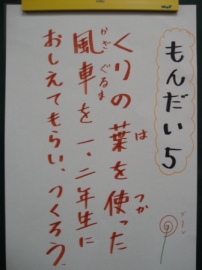 もんだい5
くりの葉を使った
は
つか
風車を一、二年生に
かざぐるま
おしえてもらい、つくろう。